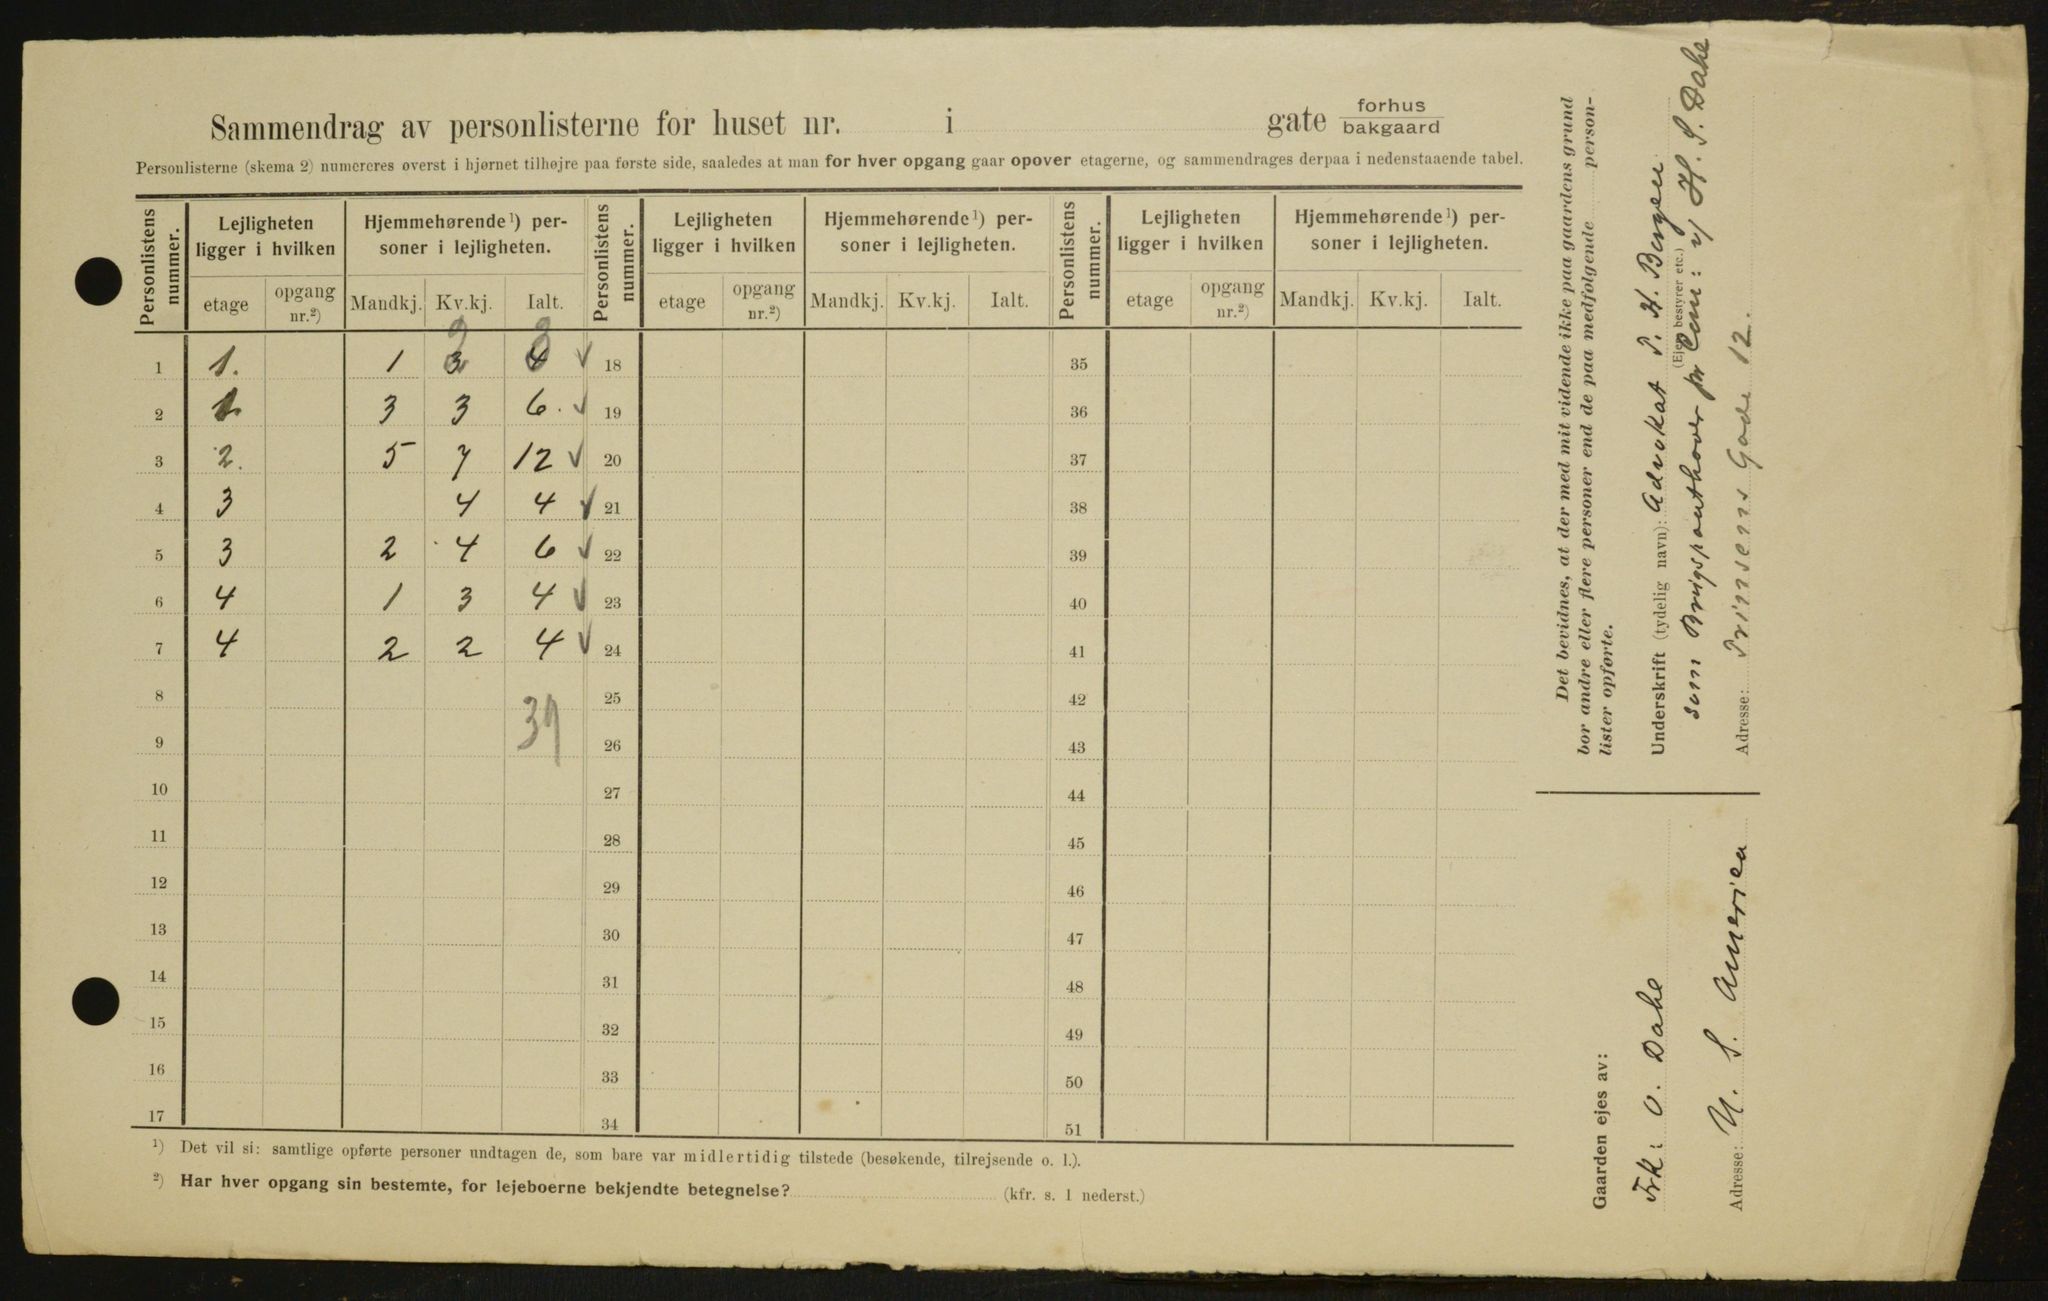 Sammendrag av personlisterne for huset nr. i gate forhus
bakgaard
Personlisterne (skema 2) numereres øverst i hjørnet tilhøjre paa første side, saaledes at man for hver opgang gaar opover etagerne, og sammendrages derpaa i nedenstaaende tabel.
Personlistens nummer. Lejligheten ligger i hvilken Hjemmehørende ¹) per-soner i lejligheten. Personlistens nummer. Lejligheten ligger i hvilken Hjemmehørende ¹) per-soner i lejligheten. Personlistens nummer. Lejligheten ligger i hvilken Hjemmehørende ¹) per-soner i lejligheten.
etage opgang nr.²) Mandkj. Kv.kj. Ialt. etage opgang nr.²) Mandkj. Kv.kj. Ialt. etage opgang nr.²) Mandkj. Kv.kj. Ialt.
2 3
1 1. 1 3 4 ✓ 18 35
2 1 3 3 6. ✓ 19 36
3 2. 5 7 12 ✓ 20 37
4 3 4 4 ✓ 21 38
5 3 2 4 6 ✓ 22 39
6 4 1 3 4 ✓ 23 40
7 4 2 2 4 ✓ 24 41
8 39 25 42
9 26 43
10 27 44
11 28 45
12 29 46
13 30 47
14 31 48
15 32 49
16 33 50
17 34 51
¹) Det vil si: samtlige opførte personer undtagen de, som bare var midlertidig tilstede (besøkende, tilrejsende o. l.).
²) Har hver opgang sin bestemte, for lejeboerne bekjendte betegnelse? (kfr. s. 1 nederst.)
Det bevidnes, at der med mit vidende ikke paa gaardens grund
bor andre eller flere personer end de paa medfølgende person-
lister opførte.
Underskrift (tydelig navn): Advokat P. H. Bergen
(Ejer, bestyrer etc.)
som Brugspanthaver pr v/ H. S. Dahe
Adresse: Prinsens Gade 12.
Gaarden ejes av:
Frk: O. Dahe
Adresse: U. S. America